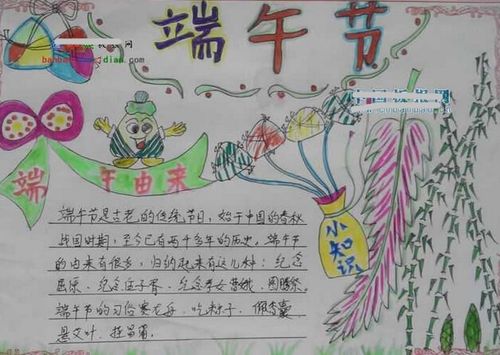 端午节
端午由来
小知识
端午节是古老的传统节日，始于中国的春秋
战国时期，至今已有两千多年的历史。端午节
的由来有很多，归纳起来有这几种：纪念
屈原、纪念伍子胥、纪念孝女曹娥、图腾祭。
端午节的习俗赛龙舟、吃粽子、佩香囊
悬艾叶、挂菖蒲。